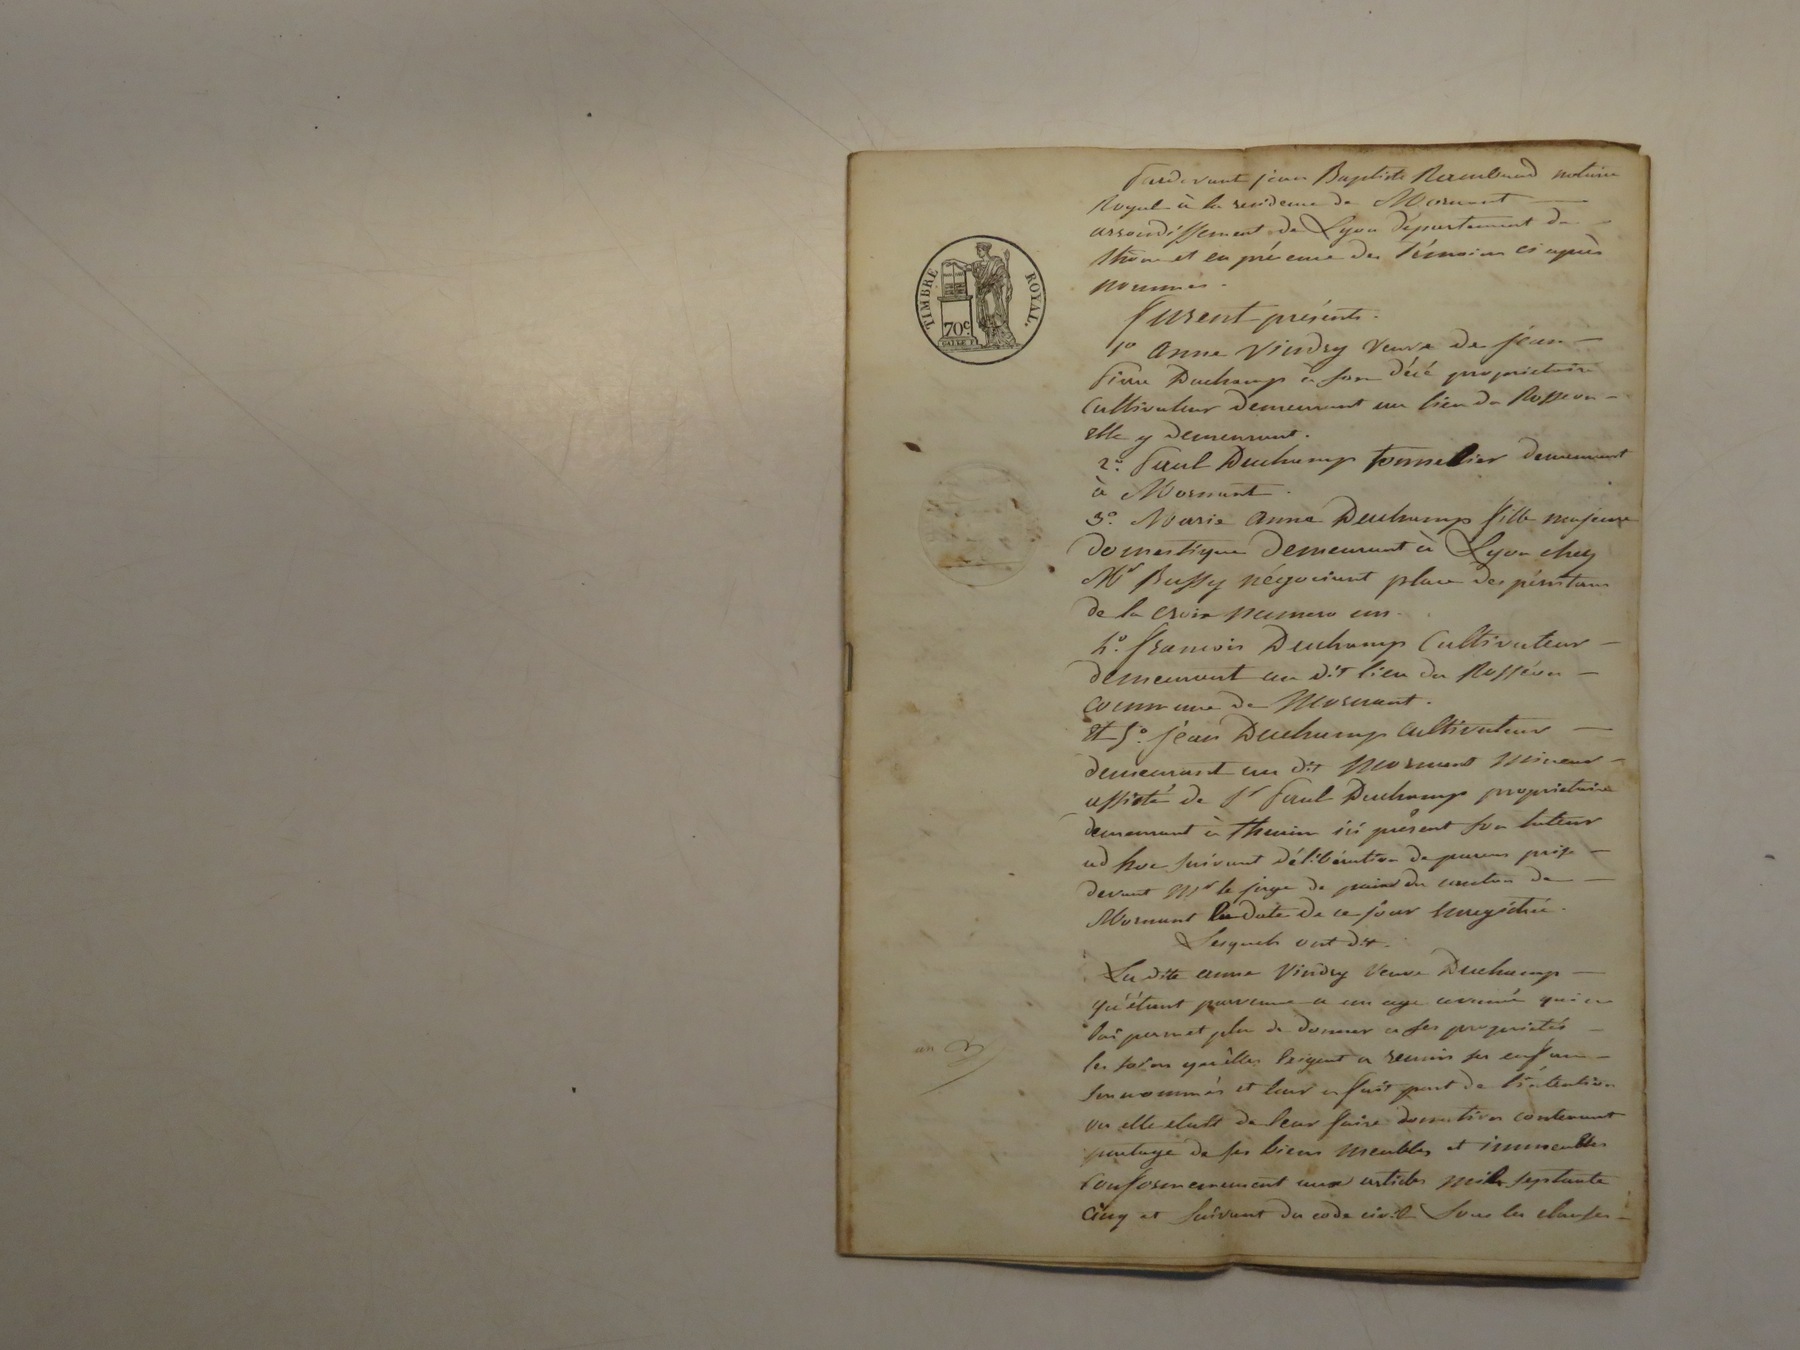 TIMBRE ROYAL.
70c.
Pardevant jean Baptiste Raimbaud notaire
Royal à la residence de Mornant
arrondissement de Lyon département du
Rhône et en présence des témoins ci après
nommés.
furent présents.
1o anne Vindry veuve de jean
Pierre Duchamp à son décé proprietaire
cultivateur demeurant au lieu du Rosseon
elle y demeurant.
2o. Paul Duchamp tonnelier demeurant
à Mornant.
3o. Marie anne Duchamp fille majeure
domestique demeurant à Lyon chez
Mr Bussy négociant place des pénitans
de la croix numero un.
4o. francois Duchamp Cultivateur
demeurant au dit lieu du Rosséon
commune de Mornant.
Et 5o. jean Duchamp cultivateur
demeurant au dit Mornant mineur
assisté de Sr Paul Duchamp proprietaire
demeurant à thurin ici présent son tuteur
ad hoc suivant délibération de parens prise
devant Mr le juge de paix du canton de
Mornant la date de ce jour enregistrée.
Lesquels ont dit.
La dite anne Vindry veuve Duchamp
qu'étant parvenue a un age avancé qui ne
lui permet plus de donner a ses propriétés
les soins qu'elles exigent a reunis ses enfans
sus nommés et leur a fait part de l'intention
ou elle etait de leur faire donation contenant
partage de ses biens meubles et immeubles
Conformemement aux articles mille septante
cinq et suivant du code civil sous les clauses